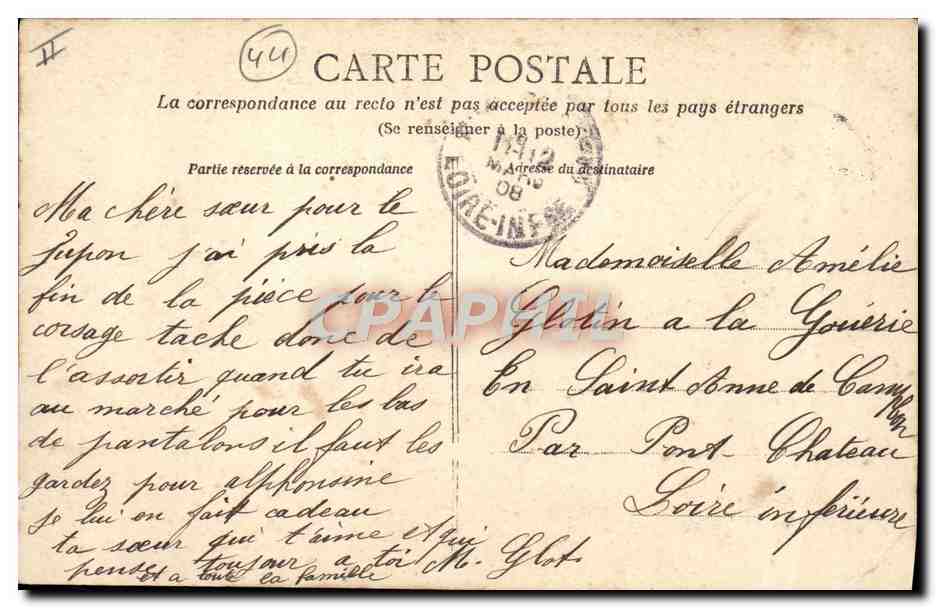 II
44
CARTE POSTALE
La correspondance au recto n'est pas acceptée par tous les pays étrangers
(Se renseigner à la poste)
Partie réservée à la correspondance
Adresse du destinataire
12
MARS
08
LOIRE-INFRE
Ma chére sœur pour le
jupon j'ai pris la
fin de la piéce pour le
corsage tache donc de
l'assortir quand tu ira
au marché pour les bas
de pantalons il faut les
gardez pour alphonsine
je lui en fait cadeau
ta sœur qui t'aime et qui
pense toujour a toi M. Glot
et a toute la famille
Mademoiselle Amélie
Glotin a la Gouérie
En Saint Anne de Campbon
Par Pont-Chateau
Loire inférieure
CPAPHIL